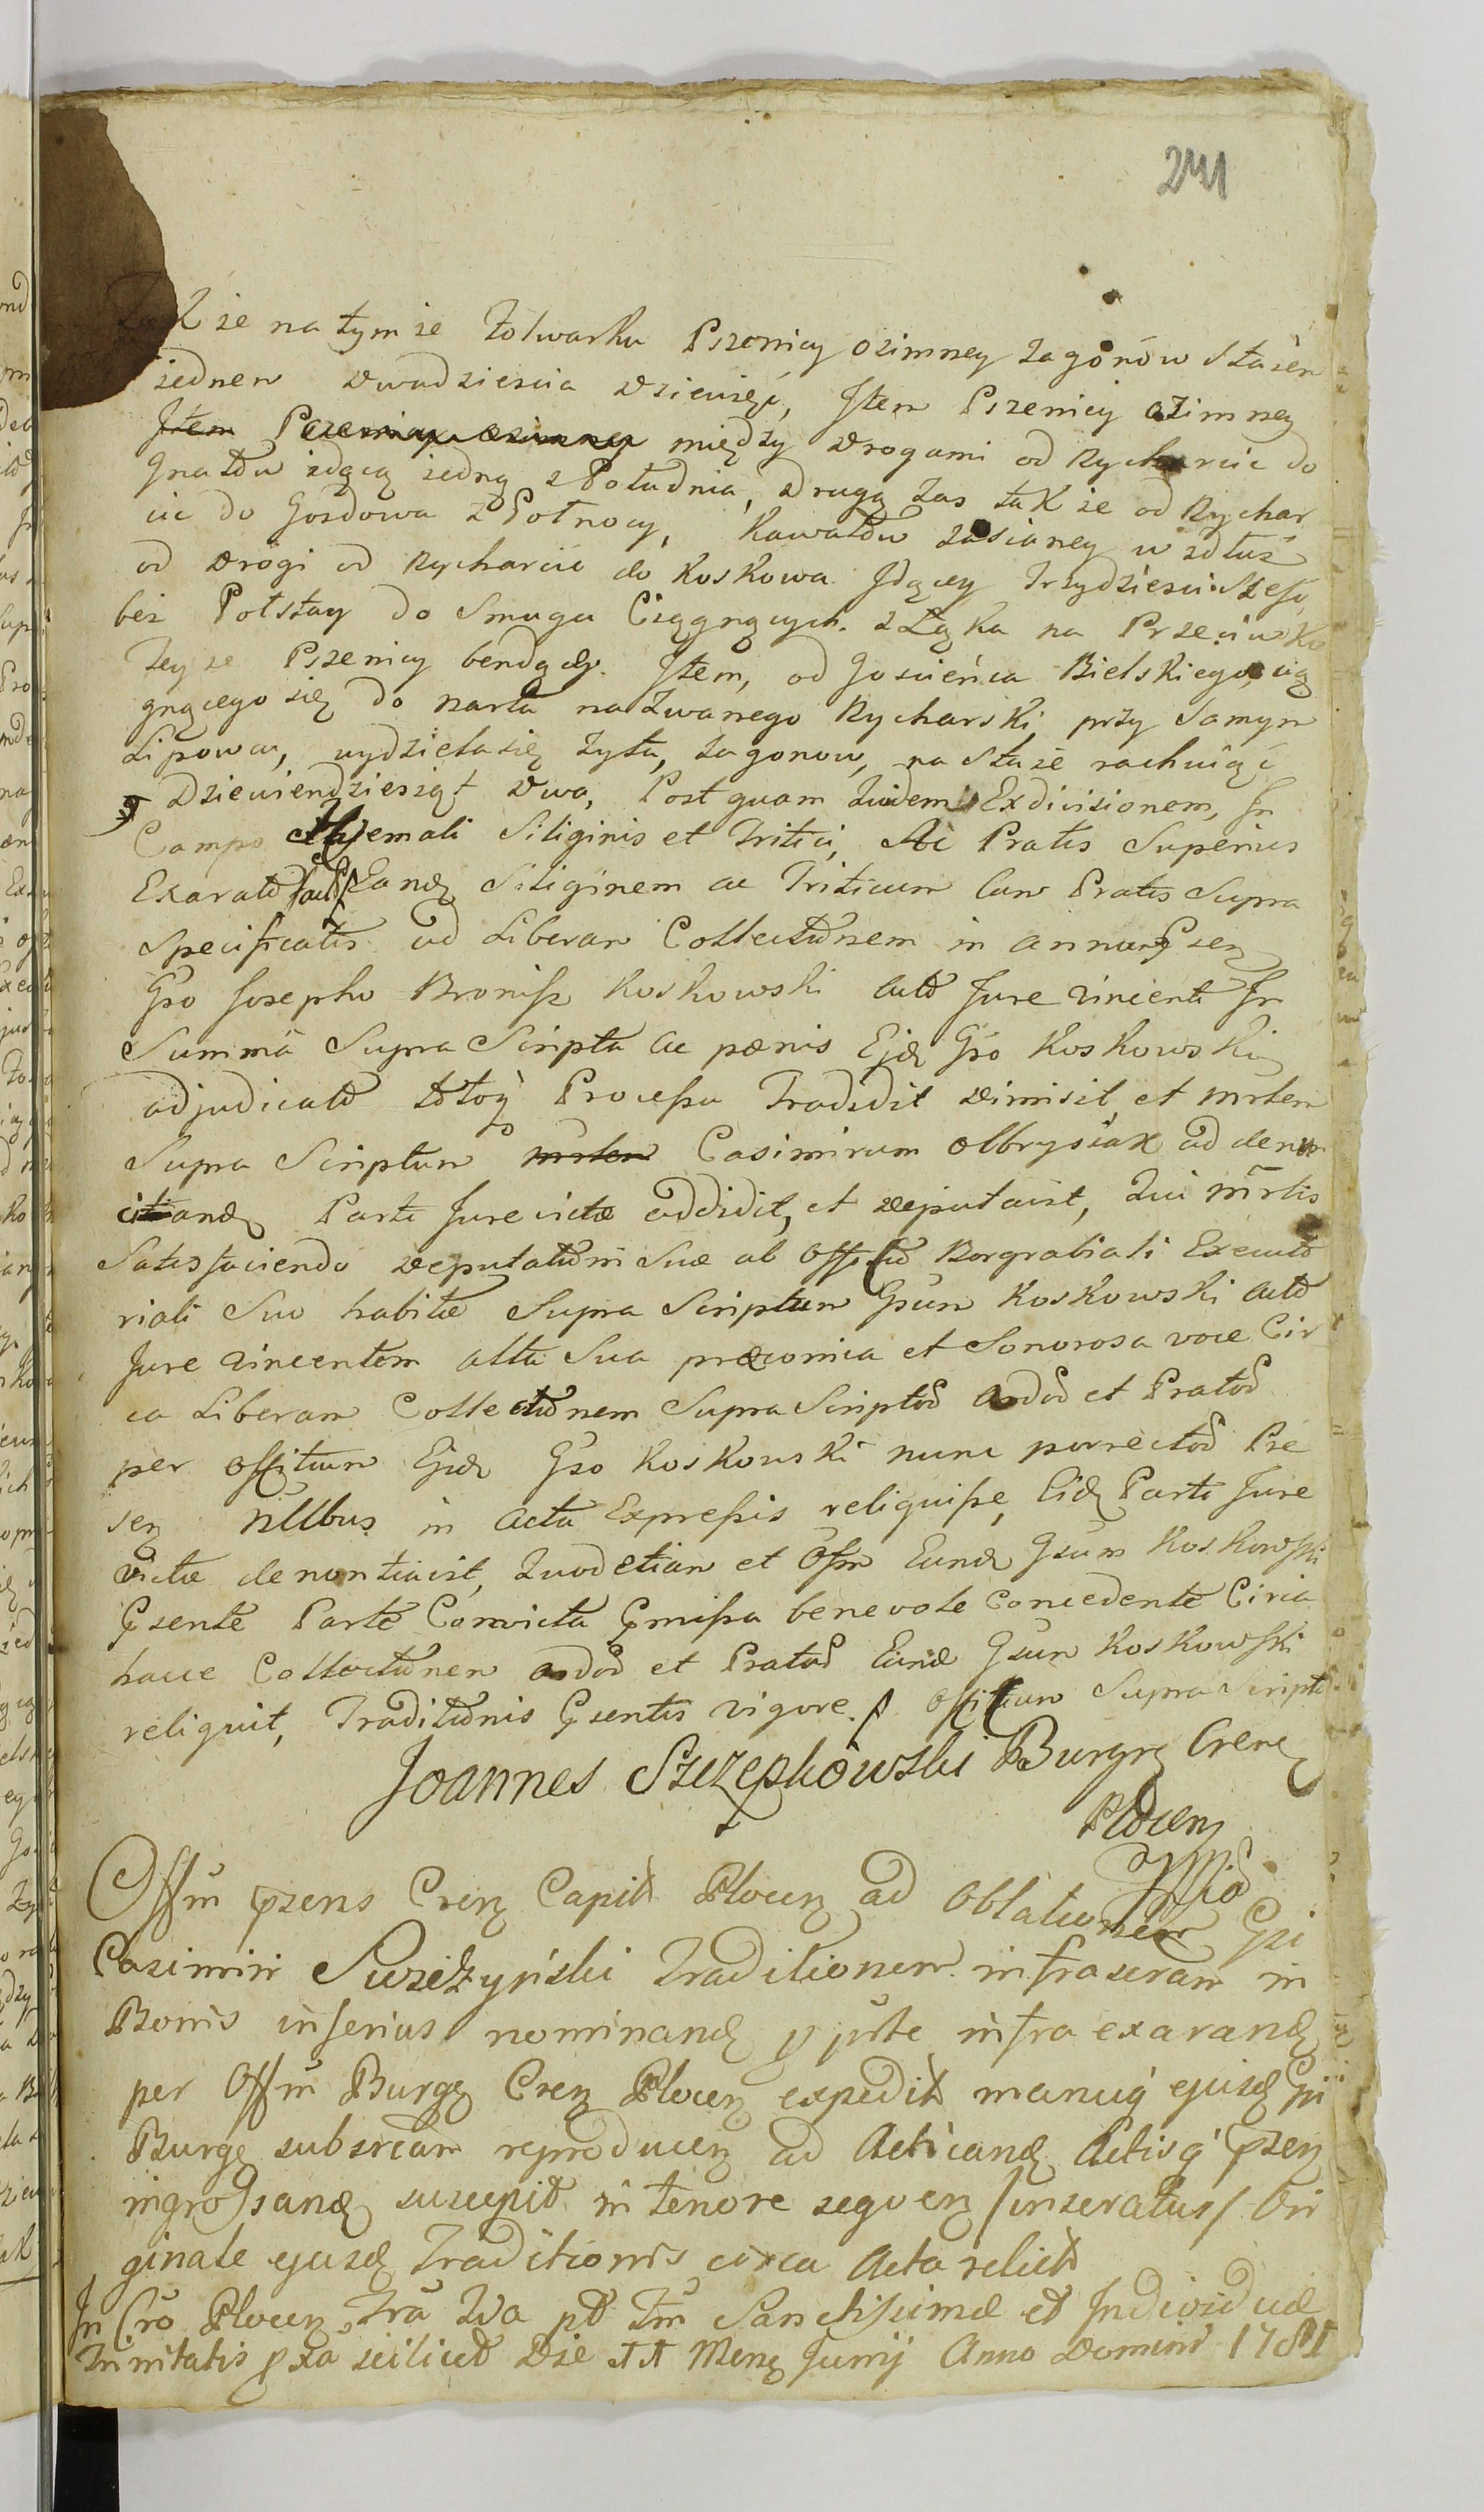 241
Takze na tymze folwarku Pszenicy ozimney zagonow stażen
jednem dwadziescia dziewięć, Jtem Pszenicy ozimney
Jtem Pszenicy ozimney między drogami od Rycharcic do
Gnatów idącą jedną z Południa, drugą zas takze od Rychar
cic do Gozdowa z Połnocy, Kawałów zasianey wzdłuż
od drogi od Rycharcic do Koskowa Jdący Trzydziesci Szesc
bez Połstay do Smuga Ciągnących. z Łąką na Przeciwko
Teyze Pszenicy bendący. Jtem, od Goscieńca Bielskiego, cią
gnącego się do narta nazwanego Rycharski, przy Samym
Lipowcu, wydziela się żyta, zagonow, na staże rachuiąc
Dziewiendziesiąt dwa, Post quam quidem Exdivisionem, In
Campo Hyemali Siliginis et Tritici, Ac Pratis Superius
Exarato fact Eand Siliginem ac Triticum Cum Pratis Supra
Specificatis ad Liberam Collectionem in annum Psen
Gso Josepho Bronisz Koskowski Acto Jure vincenti In
Summa Supra Scripta ac pœnis Ejd Gso Koskowski
adjudicato totoq Processu Tradidit dimisit, et mrlem
Supra Scriptum mrlem Casimirum Olbrysiak ad denun
citiand Parti Jure victæ addidit, et deputavit, Qui mrlis
Satisfaciendo deputationi Suæ ab Officio Borgrabiali Executo
riali Suo habitæ Supra Scriptum Gsum Koskowski Acto
Jure vincentem alta Sua præconica et Sonorosa voce Cir
ca Liberam Collectionem Supra Scripto ando et Prato
per Offitium Ejd Gso Koskowski nunc porrecto Pre
sen nllbus in acta Expressis reliquisse, Eid Parti Jure
victæ denontiavit, Quod etiam et Offm Eund Gsum Koskowski
Psente Parte Convicta Pmissa benevole Concedente Circa
hance Collectionem ando et Prato Eund Gsum Koskowski
reliquit, Traditionis Psentis vigore. Offitium Supra Scripto
Joannes Szczepkowski Burgr Cren
Plocen
Offm psens Cren Capit Plocen ad Oblationem Gsi
Casimiri Suszczyński Traditionem infrascram in
Bonis inferius nominand p pte infra exarand
per Offm Burg Cren Plocen expedit manuq ejusd Gsi
Burg subscram reproducen ad Acticand Actisq psen
ingrossand suscepit in tenore sequen /inseratus/ Ori
ginale ejusd Traditionis circa Acta relicto
In Cro Plocen fra 2da pt fm Sanctissimæ et Individuæ
Trinitatis pxa scilicet Die 11 Mens Junij Anno Domini 1781